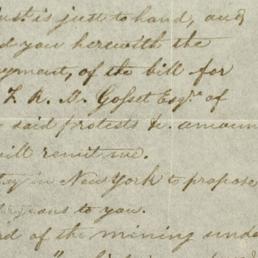 inst is just to hand, and
d you herewith the
yment, of the bill for
Z. R. D. Gosset Esqre. of
said protests &c. amoun
ill remit me.
ty in New York to propose
you.
rd of the mining unde